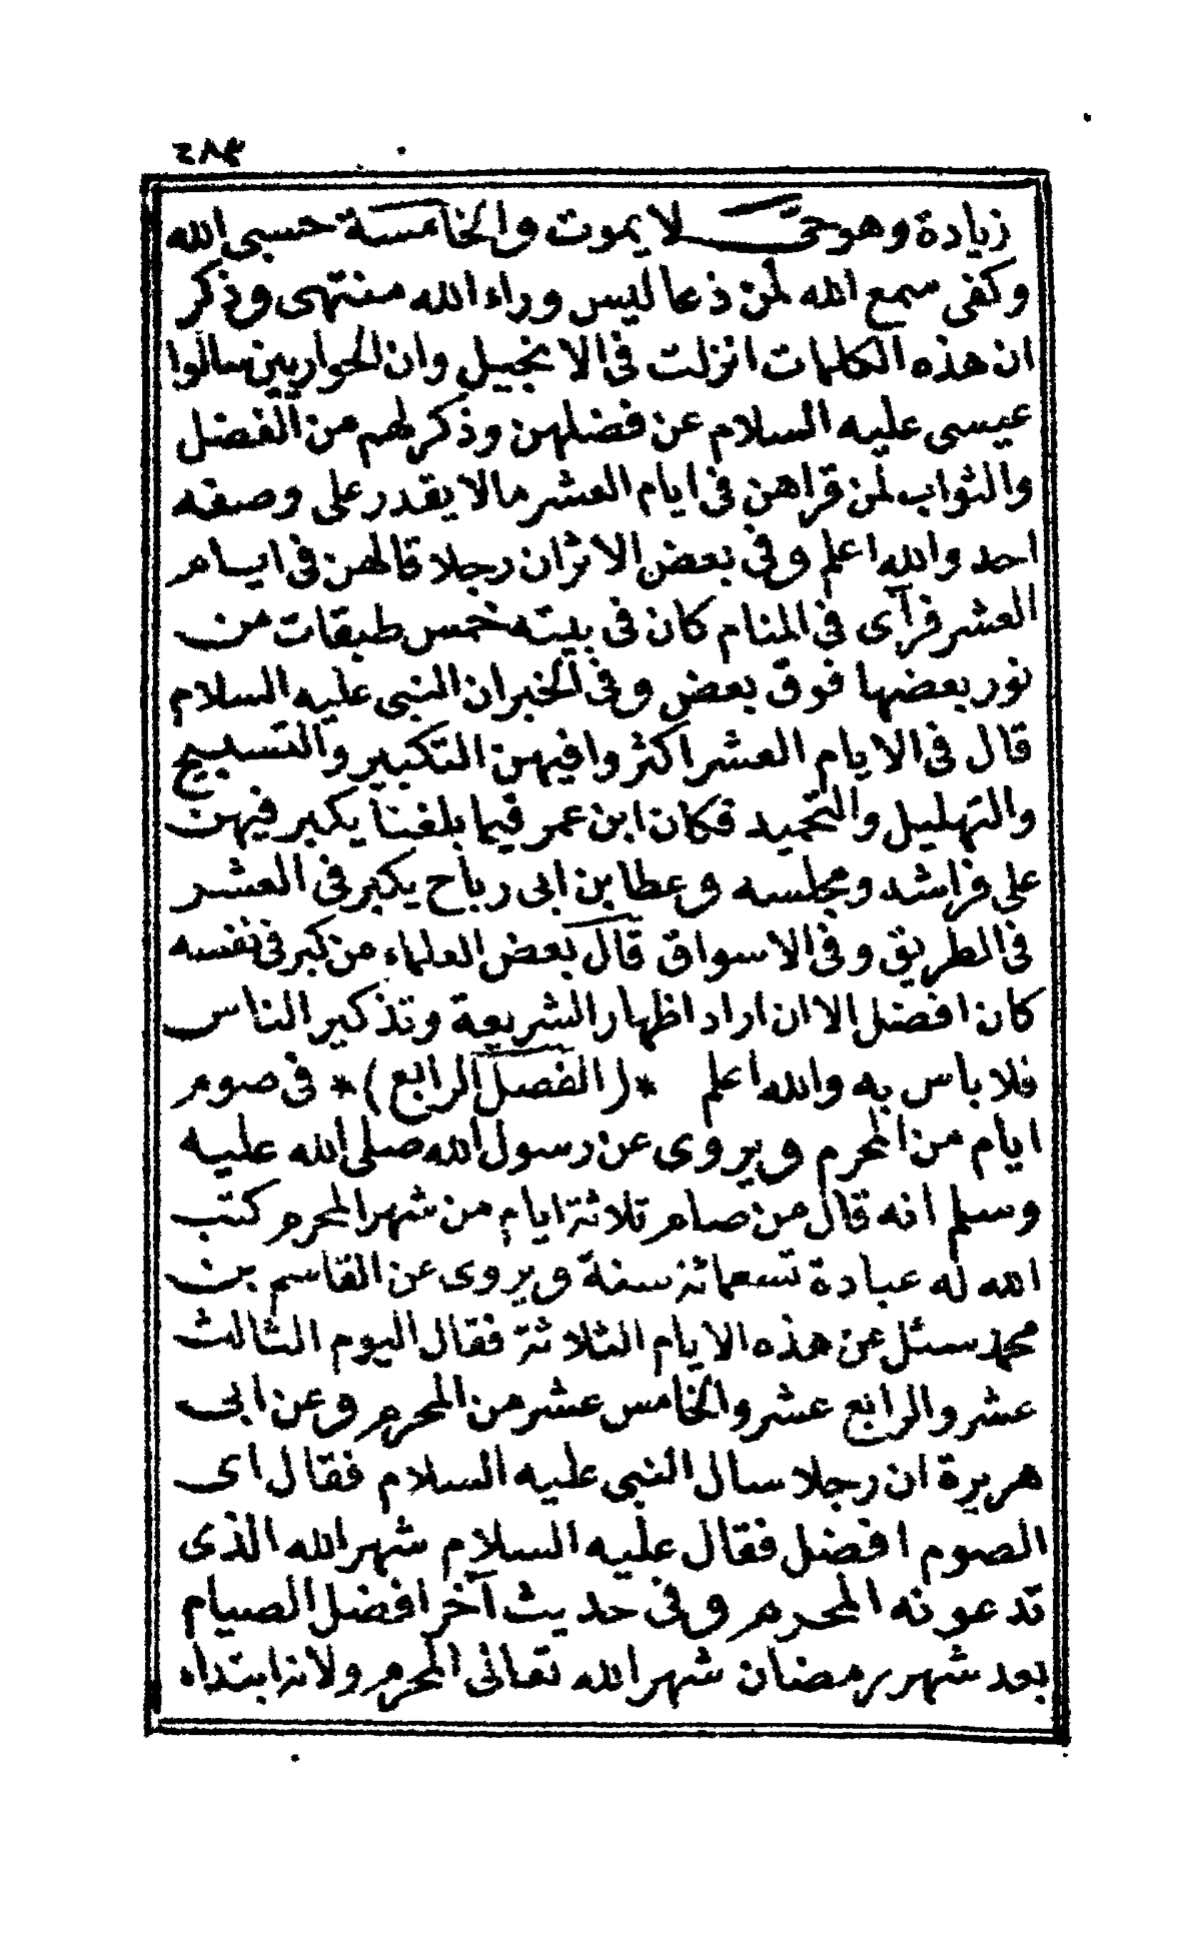 ٢٨٣
زيادة وهو حي لا يموت والخامسة حسبي الله
وكفى سمع الله لمن دعا ليس وراء الله منتهى وذكر
ان هذه الكلمات انزلت فى الانجيل وان الحواريين سالوا
عيسى عليه السلام عن فضلهن وذكر لهم من الفضل
والثواب لمن قراهن فى ايام العشر ما لا يقدر على وصفه
احد والله اعلم وفى بعض الاثر ان رجلا قالهن فى ايام
العشر فرآى فى المنام كان فى بيته خمس طبقات من
نور بعضها فوق بعض وفى الخبر ان النبى عليه السلام
قال فى الايام العشر اكثروا فيهن التكبير والتسبيح
والتهليل والتحميد فكان ابن عمر فيما بلغنا يكبر فيهن
على فراشه ومجلسه وعطا بن ابى رباح يكبر فى العشر
فى الطريق وفى الاسواق قال بعض العلماء من كبر فى نفسه
كان افضل الا ان اراد اظهار الشريعة وتذكير الناس
فلا باس به والله اعلم *(الفصل الرابع)* فى صوم
ايام من المحرم ويروى عن رسول الله صلى الله عليه
وسلم انه قال من صام ثلاثة ايام من شهر المحرم كتب
الله له عبادة تسعمائة سنة ويروى عن القاسم بن
محمد سئل عن هذه الايام الثلاثة فقال اليوم الثالث
عشر والرابع عشر والخامس عشر من المحرم وعن ابى
هريرة ان رجلا سال النبى عليه السلام فقال اى
الصوم افضل فقال عليه السلام شهر الله الذى
تدعونه المحرم وفى حديث آخر افضل الصيام
بعد شهر رمضان شهر الله تعالى المحرم ولانه ابتداء